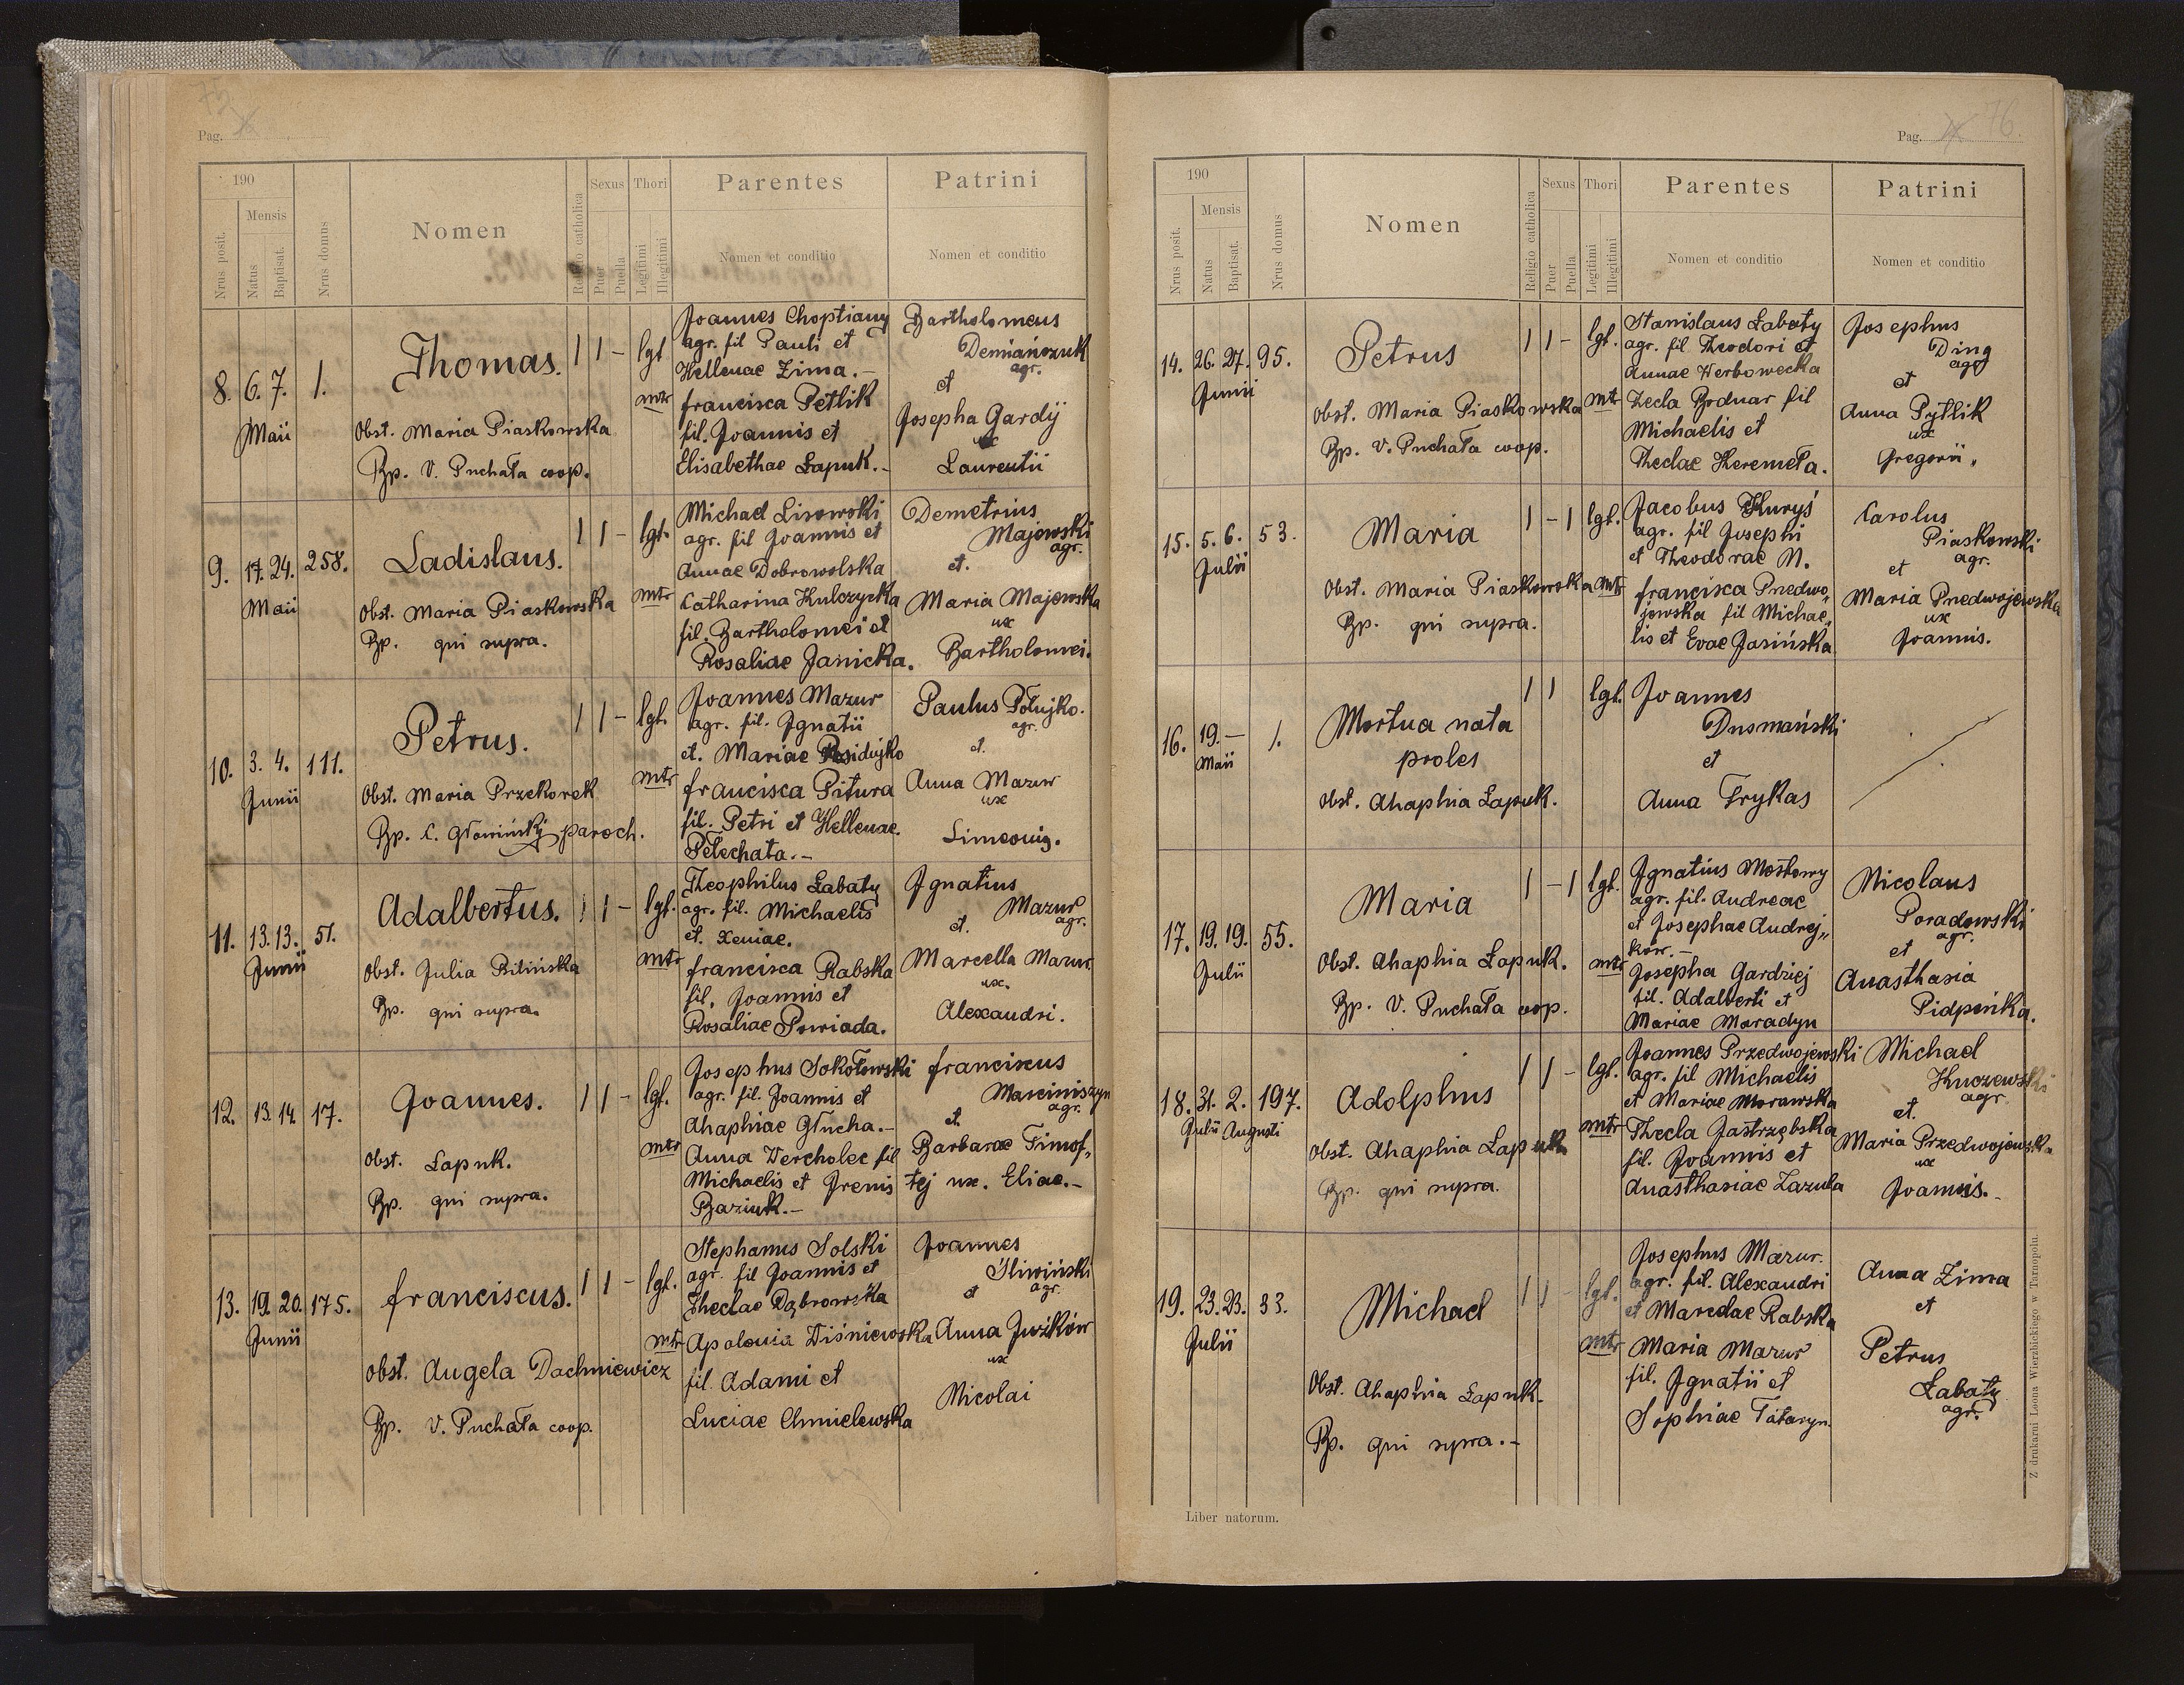 75
Pag.
190
Nrus posit.
Mensis
Natus
Baptisat.
Nrus domus
Nomen
Religio catholica
Sexus
Puer
Puella
Thori
Legitimi
Illegitimi
Parentes
Nomen et conditio
Patrini
Nomen et conditio
8. 6. 7. 1.
Maii
Thomas.
1 1 - lgt
Obst. Maria Piaskowska
Bp. V. Puchała coop.
Joannes Choptiany
agr. fil Pauli et
Hellenae Zima.-
mtr
francisca Petlik
fil. Joannis et
Elisabethae Łapuk.-
Bartholomeus
Demiańczuk
agr.
et
Josepha Gardij
ux
Laurentii
9. 17. 24. 258.
Maii
Ladislaus.
1 1 - lgt.
Obst. Maria Piaskowska
Bp. qui supra.
Michael Lisowski
agr. fil Joannis et
Annae Dobrowolska
mtr
Catharina Kulczycka
fil. Bartholomei et
Rosaliae Janicka.
Demetrius
Majewski
agr.
et.
Maria Majewska
ux
Bartholomei.
10. 3. 4. 111.
Junii
Petrus.
1 1 - lgt.
Obst. Maria Przekorek
Bp. C. Głowiński paroch.
Joannes Mazur
agr. fil. Ignatii
et. Mariae
mtr
francisca Pitura
fil. Petri et Hellenae
Pelechata.-
Paulus Połujko.
agr.
et.
Anna Mazur
ux
Simeonis.
11. 13. 13. 51.
Junii
Adalbertus.
1 1 - lgt.
Obst. Julia Bilińska
Bp. qui supra.
Theophilus Łabaty
agr. fil. Michaelis
et. Xeniae.
mtr
francisca Rabska
fil. Joannis et
Rosaliae Powiada.
Ignatius
Mazur
agr.
et.
Marcella Mazur
ux.
Alexandri.
12. 13. 14. 17.
Joannes.
1 1 - lgt.
Obst. Łapuk.
Bp. qui supra.
Josephus Sokołowski
agr. fil. Joannis et
Ahaphiae Głucha.-
mtr
Anna Wercholec fil
Michaelis et Irenis
Baziuk.-
franciscus
Marciniszyn
agr.
et.
Barbarae Timof„
tej ux. Eliae.-
13. 19. 20. 175.
Junii
franciscus.
1 1 - lgt.
Obst. Angela Dachniewicz
Bp. V. Puchała coop.
Stephanus Solski
agr. fil Joannis et
Theclae Dąbrowska
mtr
Apolonia Wiśniewska
fil. Adami et
Luciae Chmielewska
Joannes
Śliwiński
agr.
et
Anna Juzików
ux
Nicolai
76.
Pag.
190
Nrus posit.
Mensis
Natus
Baptisat.
Nrus domus
Nomen
Religio catholica
Sexus
Puer
Puella
Thori
Legitimi
Illegitimi
Parentes
Nomen et conditio
Patrini
Nomen et conditio
14. 26. 27. 95.
Junii
Petrus
1 1 - lgt.
Obst. Maria Piaskowska
Bp. V. Puchała coop.
Stanislaus Łabaty
agr. fil Theodori et
Annae Werbowecka
mtr
Tecla Bodnar fil
Michaelis et
Theclae Heremeła.
Josephus
Ding
agr
et
Anna Pytlik
ux
Gregorii„
15. 5. 6. 53.
Julii
Maria
1 - 1 lgt.
Obst. Maria Piaskowska
Bp. qui supra.
Jacobus Kuryś
agr. fil Josephi
et Theodorae N.
mtr
francisca Predwo„
jewska fil Michae„
lis et Evae Jasińska
Carolus
Piaskowski
agr.
et
Maria Predwojewska
ux
Joannis.
16. 19. — 1.
Maii
Mortua nata
proles
1 1 lgt.
Obst. Ahaphia Łapuk.
Joannes
Dusmański
et
Anna Trykas
17. 19. 19. 55.
Julii
Maria
1 - 1 lgt.
Obst. Ahaphia Łapuk.
Bp. V. Puchała coop.
Ignatius Mostowy
agr. fil. Andreae
et Josephae Andrej„
ków.-
mtr
Josepha Gardziej
fil. Adalberti et
Mariae Maradyn
Nicolaus
Poradowski
agr.
et
Anasthasia
Pidpinka.
18. 31. 2. 197.
Julii Augusti
Adolphus
1 1 - lgt.
Obst. Ahaphia Łapuk
Bp. qui supra.
Joannes Przedwojewski
agr. fil Michaelis
et Mariae Morawska
mtr
Thecla Jastrzębska
fil. Joannis et
Anasthasiae Zazula
Michael
Kuczewski
agr.
et.
Maria Przedwojewska
ux
Joannis.-
19. 23. 23. 33.
Julii
Michael
1 1 - lgt.
Obst. Ahaphia Łapuk.
Bp. qui supra.-
Josephus Mazur.
agr. fil. Alexandri
et Marcelae Rabska
mtr
Maria Mazur
fil. Ignatii et
Sophiae Tataryn.
Anna Zima
et
Petrus
Łabaty
agr.
Liber natorum.
Z drukarni Leona Wierzbickiego w Tarnopolu.